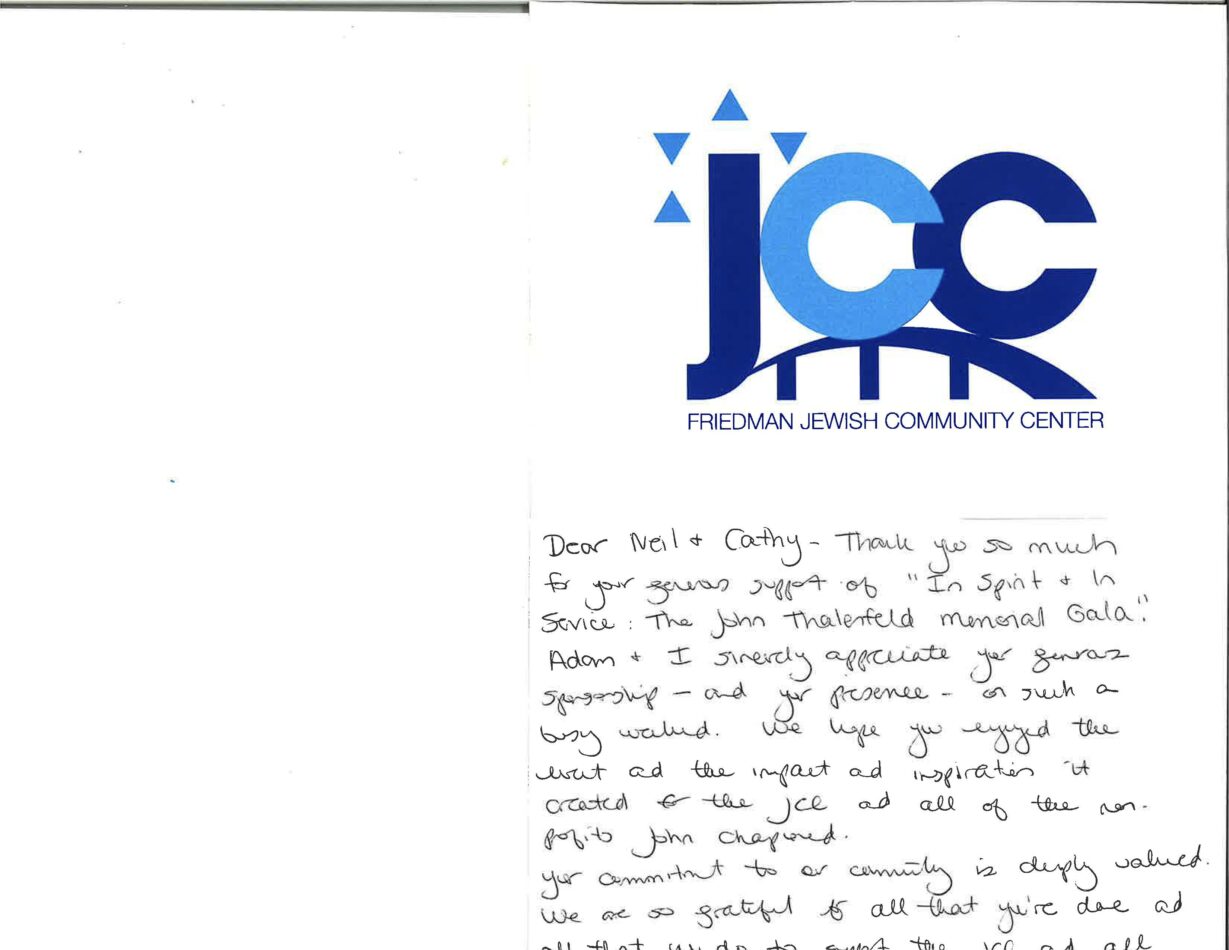 jcc
FRIEDMAN JEWISH COMMUNITY CENTER
Dear Neil + Cathy - Thank you so much
for your generous support of "In Spirit + In
Service: The John Thalenfeld Memorial Gala".
Adam + I sincerely appreciate your generous
sponsorship - and your presence - on such a
busy weekend. We hope you enjoyed the
event and the impact and inspiration it
created for the JCC and all of the non-
profits John championed.
Your commitment to our community is deeply valued.
We are so grateful for all that you've done and
all that you do to support the JCC and all